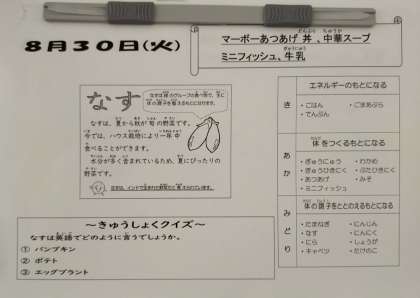 8月30日(火)
マーボーあつあげ丼、中華スープ
ミニフィッシュ、牛乳
なす
なすは緑のグループの食べ物で、主に
体の調子を整えるもとになります。
なすは、夏から秋が旬の野菜です。
今では、ハウス栽培により一年中
食べることができます。
水分が多く含まれているため、夏にぴったりの
野菜です。
なすは、インドで生まれた野菜だと
～きゅうしょくクイズ～
なすは英語でどのように言うでしょうか。
① パンプキン
② ポテト
③ エッグプラント
エネルギーのもとになる
き
・ごはん ・ごまあぶら
・でんぷん
体をつくるもとになる
あか
・ぎゅうにゅう ・わかめ
・ぎゅうひきにく ・ぶたひきにく
・あつあげ ・みそ
・ミニフィッシュ
体の調子をととのえるもとになる
みどり
・たまねぎ ・にんじん
・なす ・にんにく
・にら ・しょうが
・キャベツ ・たけのこ